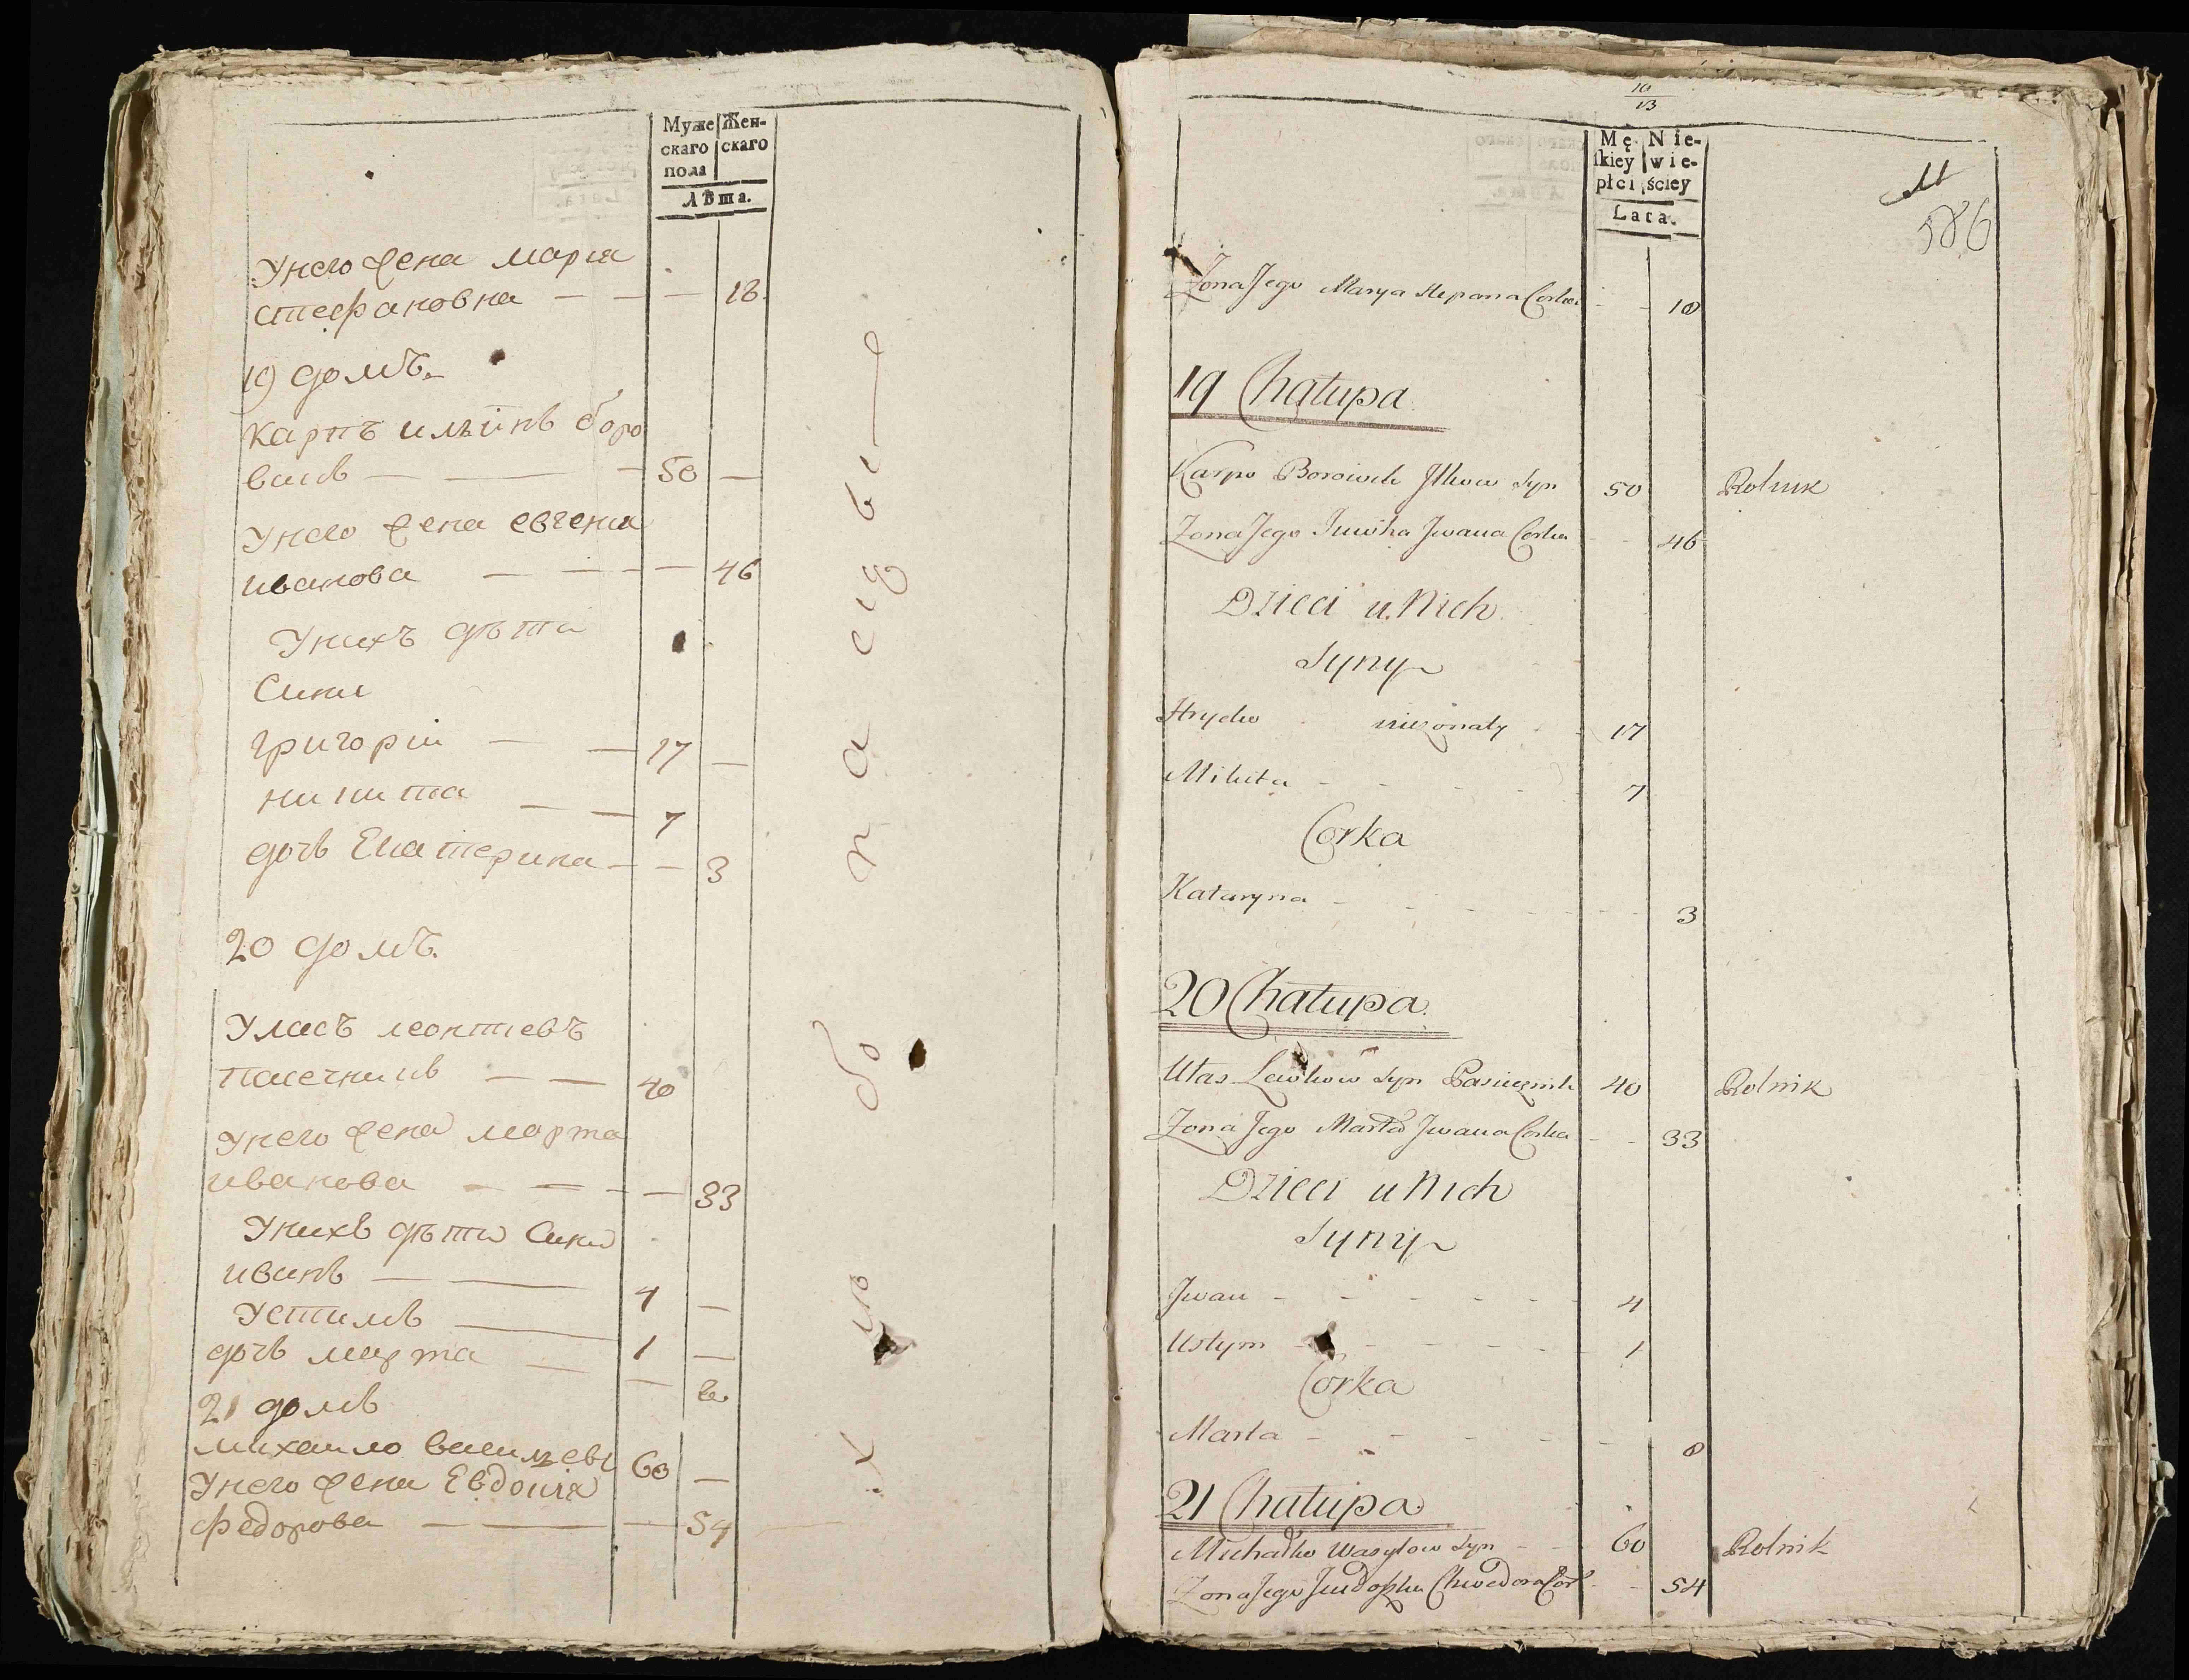 Муже Жен-
скаго скаго
пола
Лѣта.
Унего жена мариа
стефановна — — — 18.
19 домъ.
Карпъ ильинъ боро
викъ — — — 50 —
Унего жена евгениа
иванова — — — — 46
Унихъ дѣти
Сини
григорій — — 17 —
никита — — 7
дочь Екатерина — — 3
20 домъ.
Уласъ леонтиевъ
пасечникъ — — 40
Унего жена марта
иванова — — — — 33
Унихъ дѣти Сини
иванъ — — 4 —
Устимъ — 1 —
дочь марта — —
21 домъ
михайло василиевъ 60 —
Унего жена Евдокиа
федорова — — — 54
Mę- Nie-
ſkiey wie-
płci ściey
Lata.
586
Zona Jego Marya Stepana Corka - - 18
19 Chałupa
Karpo Borowik Ilkow Syn 50 Rolnik
Zona Jego Iuwha Jwana Corka - - 46
Dzieci u Nich
Syny
Hryćko niezonaty - - 17
Mikita - - - - 7
Corka
Kataryna - - - - - - 3
20 Chałupa.
Ułas Lewkow Syn Pasiecznik 40 Rolnik
Zona Jego Marta Jwana Corka - - 33
Dzieci u Nich
Syny
Jwan - - - - - - 4
Ustym - - - - - - 1
Corka
Marta - - - - - - 8
21 Chałupa
Michałko Wasylow Syn - - 60 Rolnik
Zona Jego Chwedora Cor - - 54